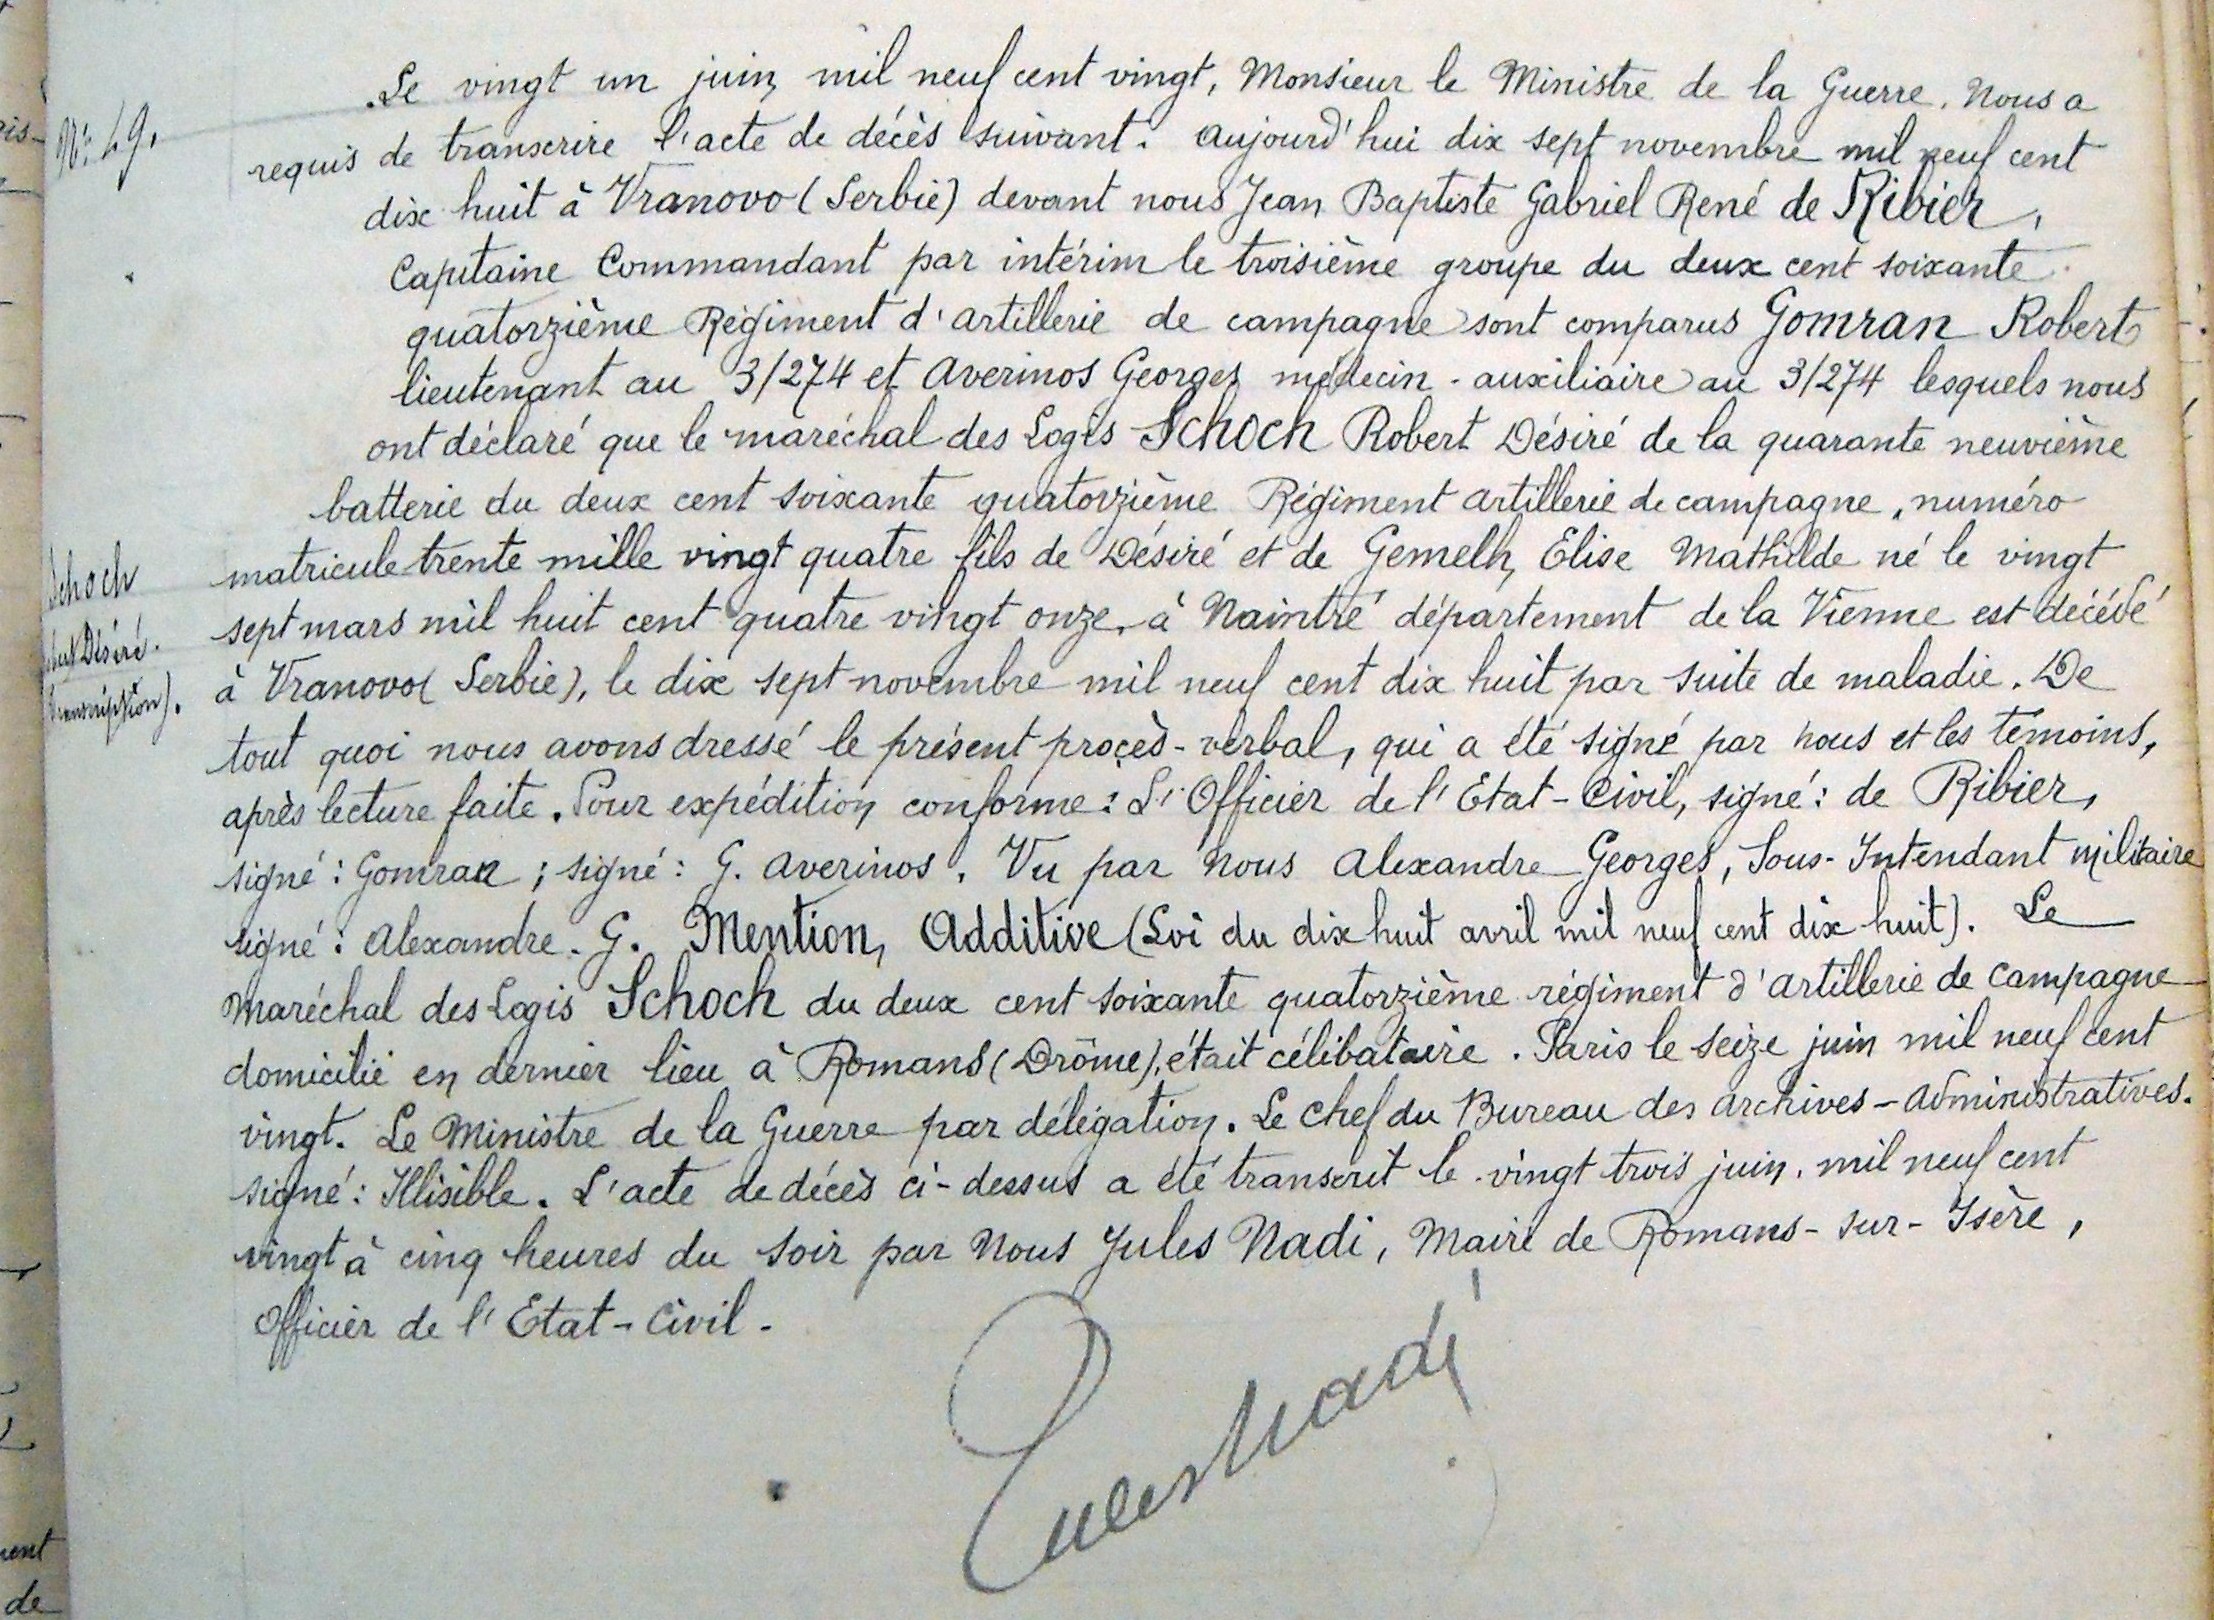 Le vingt un juin mil neuf cent vingt, Monsieur le Ministre de la Guerre, Nous a
N° 49.
requis de transcrire l'acte de décès suivant. aujourd'hui dix sept novembre mil neuf cent
dix huit à Vranovo (Serbie) devant nous Jean Baptiste Gabriel René de Ribier,
Capitaine Commandant par intérim le troisième groupe du deux cent soixante
quatorzième Régiment d'artillerie de campagne sont comparus Gomran Robert
lieutenant au 3/274 et Averinos Georges médecin-auxiliaire au 3/274 lesquels nous
ont déclaré que le maréchal des Logis Schoch Robert Désiré de la quarante neuvième
batterie du deux cent soixante quatorzième Régiment artillerie de campagne, numéro
matricule trente mille vingt quatre fils de Désiré et de Gemelh, Elise Mathilde né le vingt
sept mars mil huit cent quatre vingt onze, à Naintré département de la Vienne est décédé
à Vranovo (Serbie), le dix sept novembre mil neuf cent dix huit par suite de maladie. De
tout quoi nous avons dressé le présent procès-verbal, qui a été signé par nous et les témoins,
après lecture faite. Pour expédition conforme: L'Officier de l'Etat-Civil, signé: de Ribier,
signé: Gomran; signé: G. Averinos. Vu par Nous Alexandre Georges, Sous-Intendant militaire
signé: Alexandre. G. Mention, Additive (Loi du dix huit avril mil neuf cent dix huit). Le
Maréchal des Logis Schoch du deux cent soixante quatorzième régiment d'artillerie de campagne
domicilié en dernier lieu à Romans (Drôme), était célibataire. Paris le seize juin mil neuf cent
vingt. Le Ministre de la Guerre par délégation. Le chef du Bureau des Archives-Administratives.
signé: Illisible. L'acte de décès ci-dessus a été transcrit le vingt trois juin, mil neuf cent
vingt à cinq heures du soir par Nous Jules Nadi, Maire de Romans-sur-Isère,
Officier de l'Etat-Civil.
Schoch
Désiré.
(transcription).
Jules Nadi